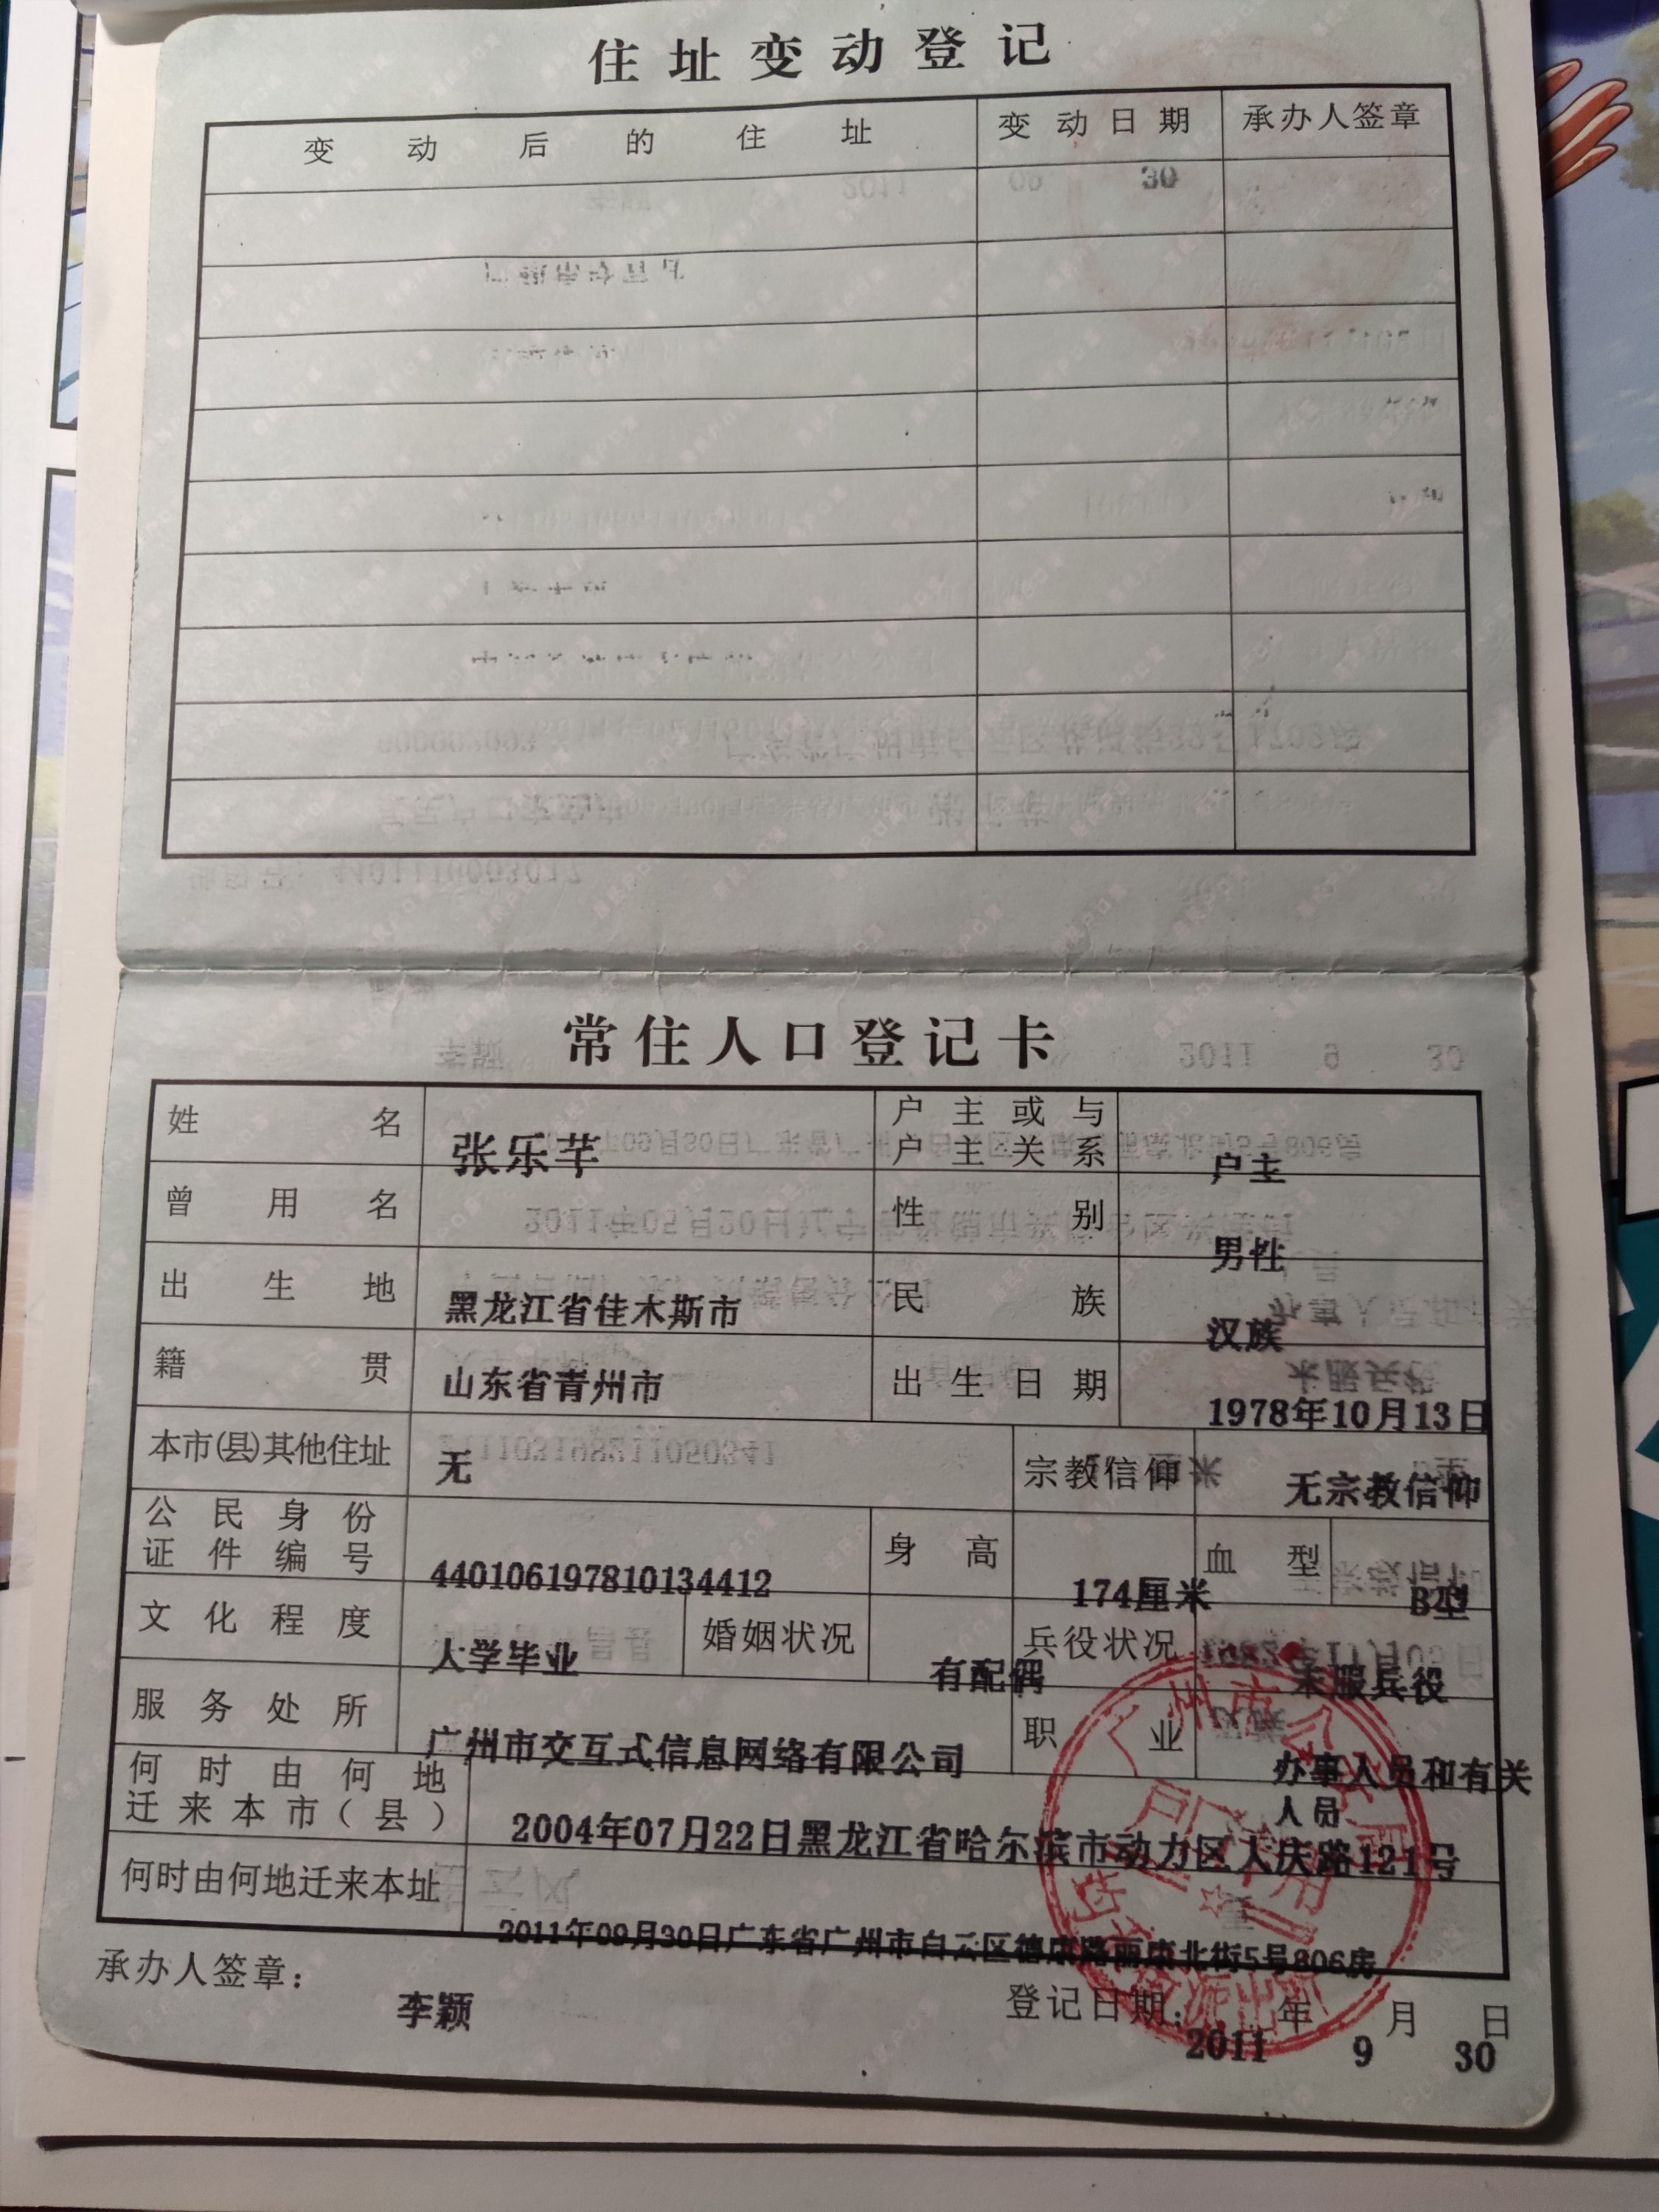 住址变动登记
变动后的住址 变动日期 承办人签章
2011 09 30
常住人口登记卡
姓名 张乐芊 户主或与户主关系 户主
曾用名 性别 男性
出生地 黑龙江省佳木斯市 民族 汉族
籍贯 山东省青州市 出生日期 1978年10月13日
本市(县)其他住址 无 宗教信仰 无宗教信仰
公民身份证件编号 440106197810134412 身高 174厘米 血型 B型
文化程度 大学毕业 婚姻状况 有配偶 兵役状况 未服兵役
服务处所 广州市交互式信息网络有限公司 职业 办事人员和有关人员
何时由何地迁来本市(县) 2004年07月22日黑龙江省哈尔滨市动力区大庆路121号
何时由何地迁来本址 2011年09月30日广东省广州市白云区德康路丽康北街5号806房
承办人签章: 李颖 登记日期: 2011年9月30日